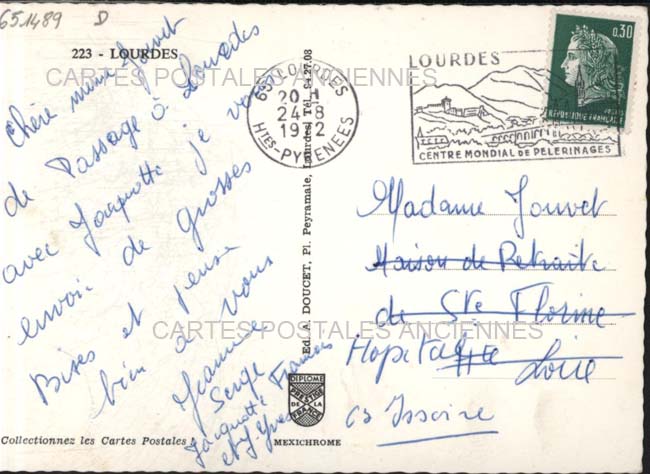 651489 D
223 - LOURDES
CARTES POSTALES ANCIENNES
Chère mme Jouvet
de Passage à Lourdes
avec Jacquotte je vous
envoie de grosses
Bises et pense
bien à vous
Jeannine
Serge Francis
Jacquotte
et J. Yves
Collectionnez les Cartes Postales
MEXICHROME
Ed. A. DOUCET, Pl. Peyramale, Lourdes, Tél. 94.27.08
DIPLOME
PRESTIGE
DE LA
FRANCE
65 LOURDES
20 H
24-8
1972
HTES-PYRENEES
LOURDES
CENTRE MONDIAL DE PELERINAGES
0,30
REPUBLIQUE FRANÇAISE
Madame Jouvet
Maison de Retraite
de Ste Florine
Hopital Hte Loire
63 Issoire
CARTES POSTALES ANCIENNES